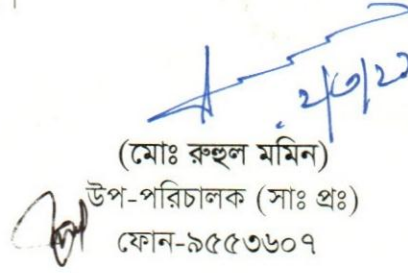 ২/৩/২২
(মোঃ রুহুল মমিন)
উপ-পরিচালক (সাঃ প্রঃ)
ফোন-৯৫৫৩৬০৭